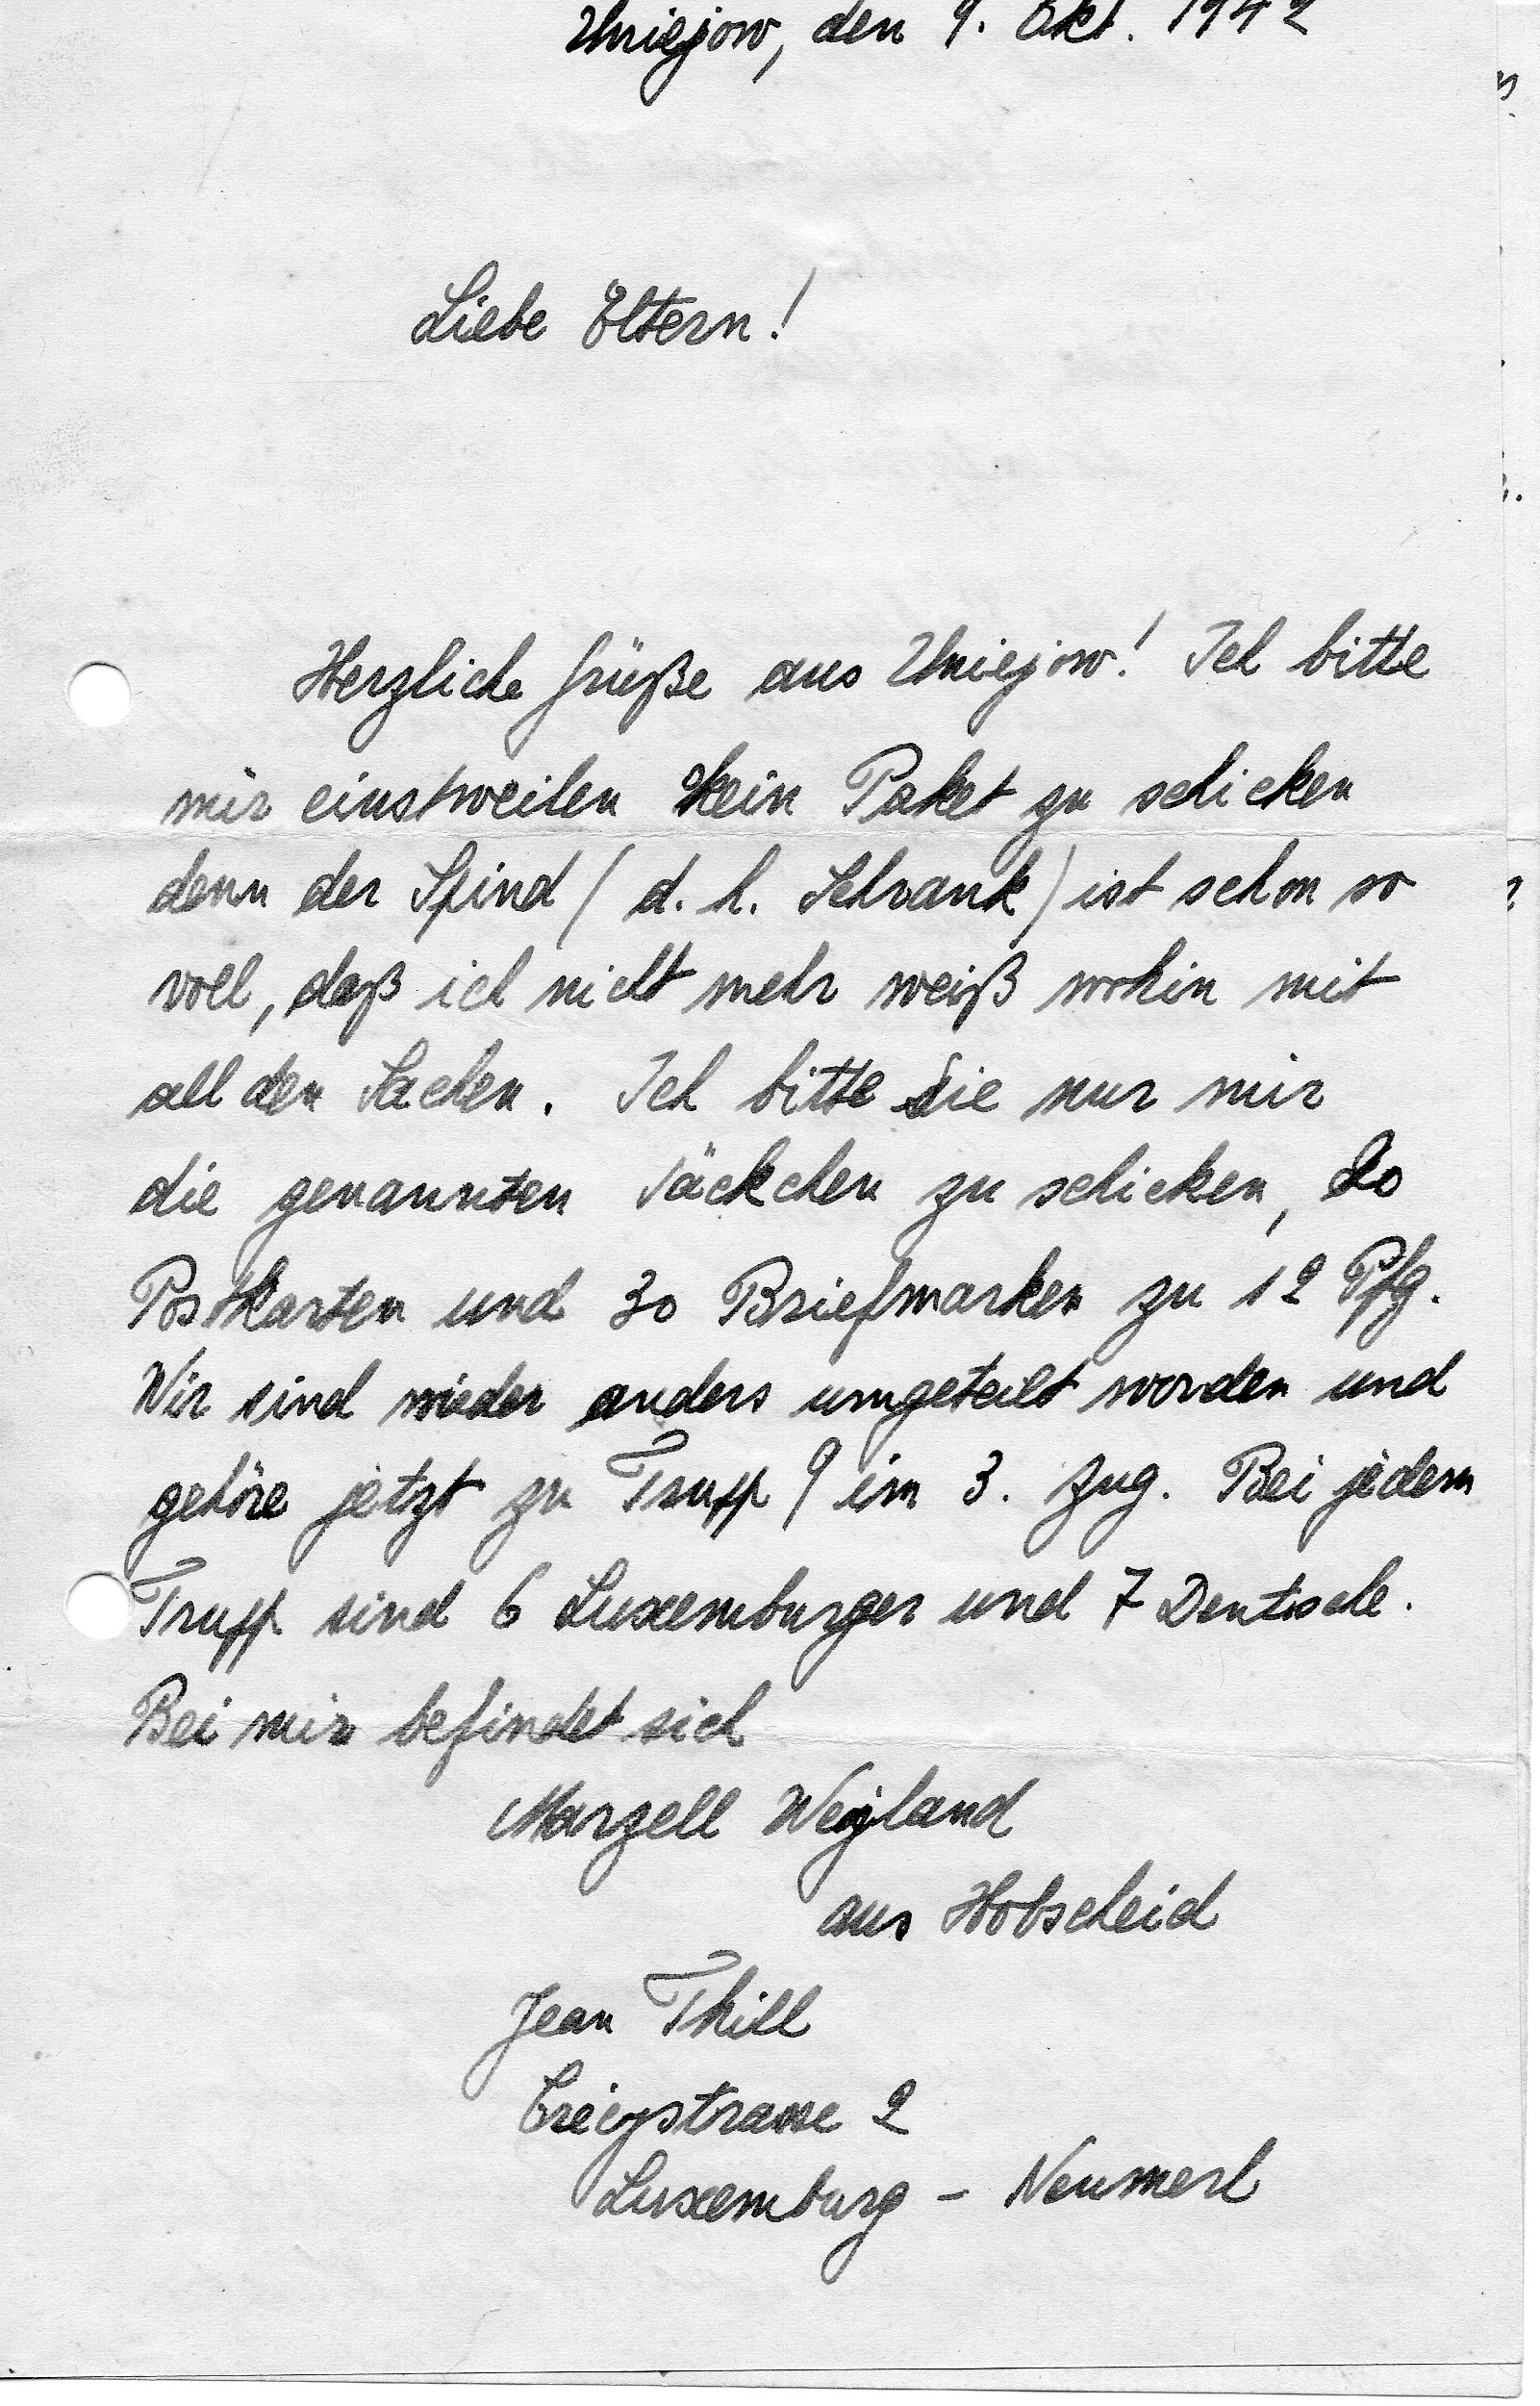 Uniejow, den 9. Okt. 1942
Liebe Eltern!
Herzliche Grüße aus Uniejow! Ich bitte
mir einstweilen kein Paket zu schicken
denn der Spind (d. h. Schrank) ist schon so
voll, daß ich nicht mehr weiß wohin mit
all den Sachen. Ich bitte Sie nur mir
die genannten Säckchen zu schicken,
Postkarten und 30 Briefmarken zu 12 Pfg.
Wir sind wieder anders umgeteilt worden und
gehöre jetzt zu Trupp 9 im 3. Zug. Bei jedem
Trupp sind 6 Luxemburger und 7 Deutsche.
Bei mir befindet sich
Marzell Weyland
aus Hobscheid
Jean Thill
2
Luxemburg - Neumerl